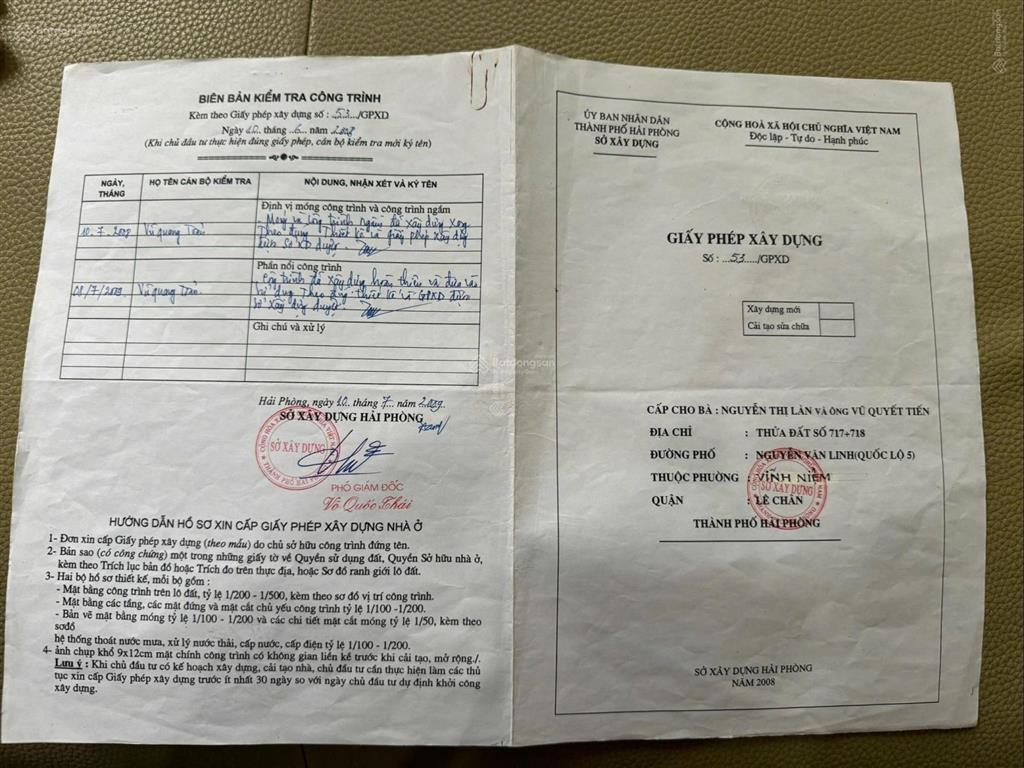 BIÊN BẢN KIỂM TRA CÔNG TRÌNH
Kèm theo Giấy phép xây dựng số : 53.../GPXD
Ngày 10. tháng ..6.. năm 2008
(Khi chủ đầu tư thực hiện đúng giấy phép, cán bộ kiểm tra mới ký tên)
NGÀY, THÁNG
HỌ TÊN CÁN BỘ KIỂM TRA
NỘI DUNG, NHẬN XÉT VÀ KÝ TÊN
Định vị móng công trình và công trình ngầm
10.7.2008
Vũ quang
- Móng và công trình ngầm đã xây dựng xong
Theo đúng Thiết kế và giấy phép xây dựng
Sở XD duyệt.
Phần nổi công trình
08/7/2009
Vũ quang
Công trình đã xây dựng hoàn thiện và đưa vào
sử dụng Theo đúng thiết kế và GPXD được
sở xây dựng duyệt.
Ghi chú và xử lý
Hải Phòng, ngày 10. tháng 7. năm 2009.
SỞ XÂY DỰNG HẢI PHÒNG
SỞ XÂY DỰNG
PHÓ GIÁM ĐỐC
Võ Quốc Thái
HƯỚNG DẪN HỒ SƠ XIN CẤP GIẤY PHÉP XÂY DỰNG NHÀ Ở
1- Đơn xin cấp Giấy phép xây dựng (theo mẫu) do chủ sở hữu công trình đứng tên.
2- Bản sao (có công chứng) một trong những giấy tờ về Quyền sử dụng đất, Quyền Sở hữu nhà ở,
kèm theo Trích lục bản đồ hoặc Trích đo trên thực địa, hoặc Sơ đồ ranh giới lô đất.
3- Hai bộ hồ sơ thiết kế, mỗi bộ gồm :
- Mặt bằng công trình trên lô đất, tỷ lệ 1/200 - 1/500, kèm theo sơ đồ vị trí công trình.
- Mặt bằng các tầng, các mặt đứng và mặt cắt chủ yếu công trình tỷ lệ 1/100 -1/200.
- Bản vẽ mặt bằng móng tỷ lệ 1/100 - 1/200 và các chi tiết mặt cắt móng tỷ lệ 1/50, kèm theo
sơđồ
hệ thống thoát nước mưa, xử lý nước thải, cấp nước, cấp điện tỷ lệ 1/100 - 1/200.
4- ảnh chụp khổ 9x12cm mặt chính công trình có không gian liền kề trước khi cải tạo, mở rộng./.
Lưu ý : Khi chủ đầu tư có kế hoạch xây dựng, cải tạo nhà, chủ đầu tư cần thực hiện làm các thủ
tục xin cấp Giấy phép xây dựng trước ít nhất 30 ngày so với ngày chủ đầu tư dự định khởi công
xây dựng.
ỦY BAN NHÂN DÂN
THÀNH PHỐ HẢI PHÒNG
SỞ XÂY DỰNG
CỘNG HOÀ XÃ HỘI CHỦ NGHĨA VIỆT NAM
Độc lập - Tự do - Hạnh phúc
GIẤY PHÉP XÂY DỰNG
Số : ...53..../GPXD
Xây dựng mới
Cải tạo sửa chữa
CẤP CHO BÀ : NGUYỄN THỊ LÀN VÀ ÔNG VŨ QUYẾT TIẾN
ĐỊA CHỈ : THỬA ĐẤT SỐ 717+718
ĐƯỜNG PHỐ : NGUYỄN VĂN LINH(QUỐC LỘ 5)
THUỘC PHƯỜNG : VĨNH NIỆM
QUẬN : LÊ CHÂN
SỞ XÂY DỰNG
THÀNH PHỐ HẢI PHÒNG
SỞ XÂY DỰNG HẢI PHÒNG
NĂM 2008
Batdongsan